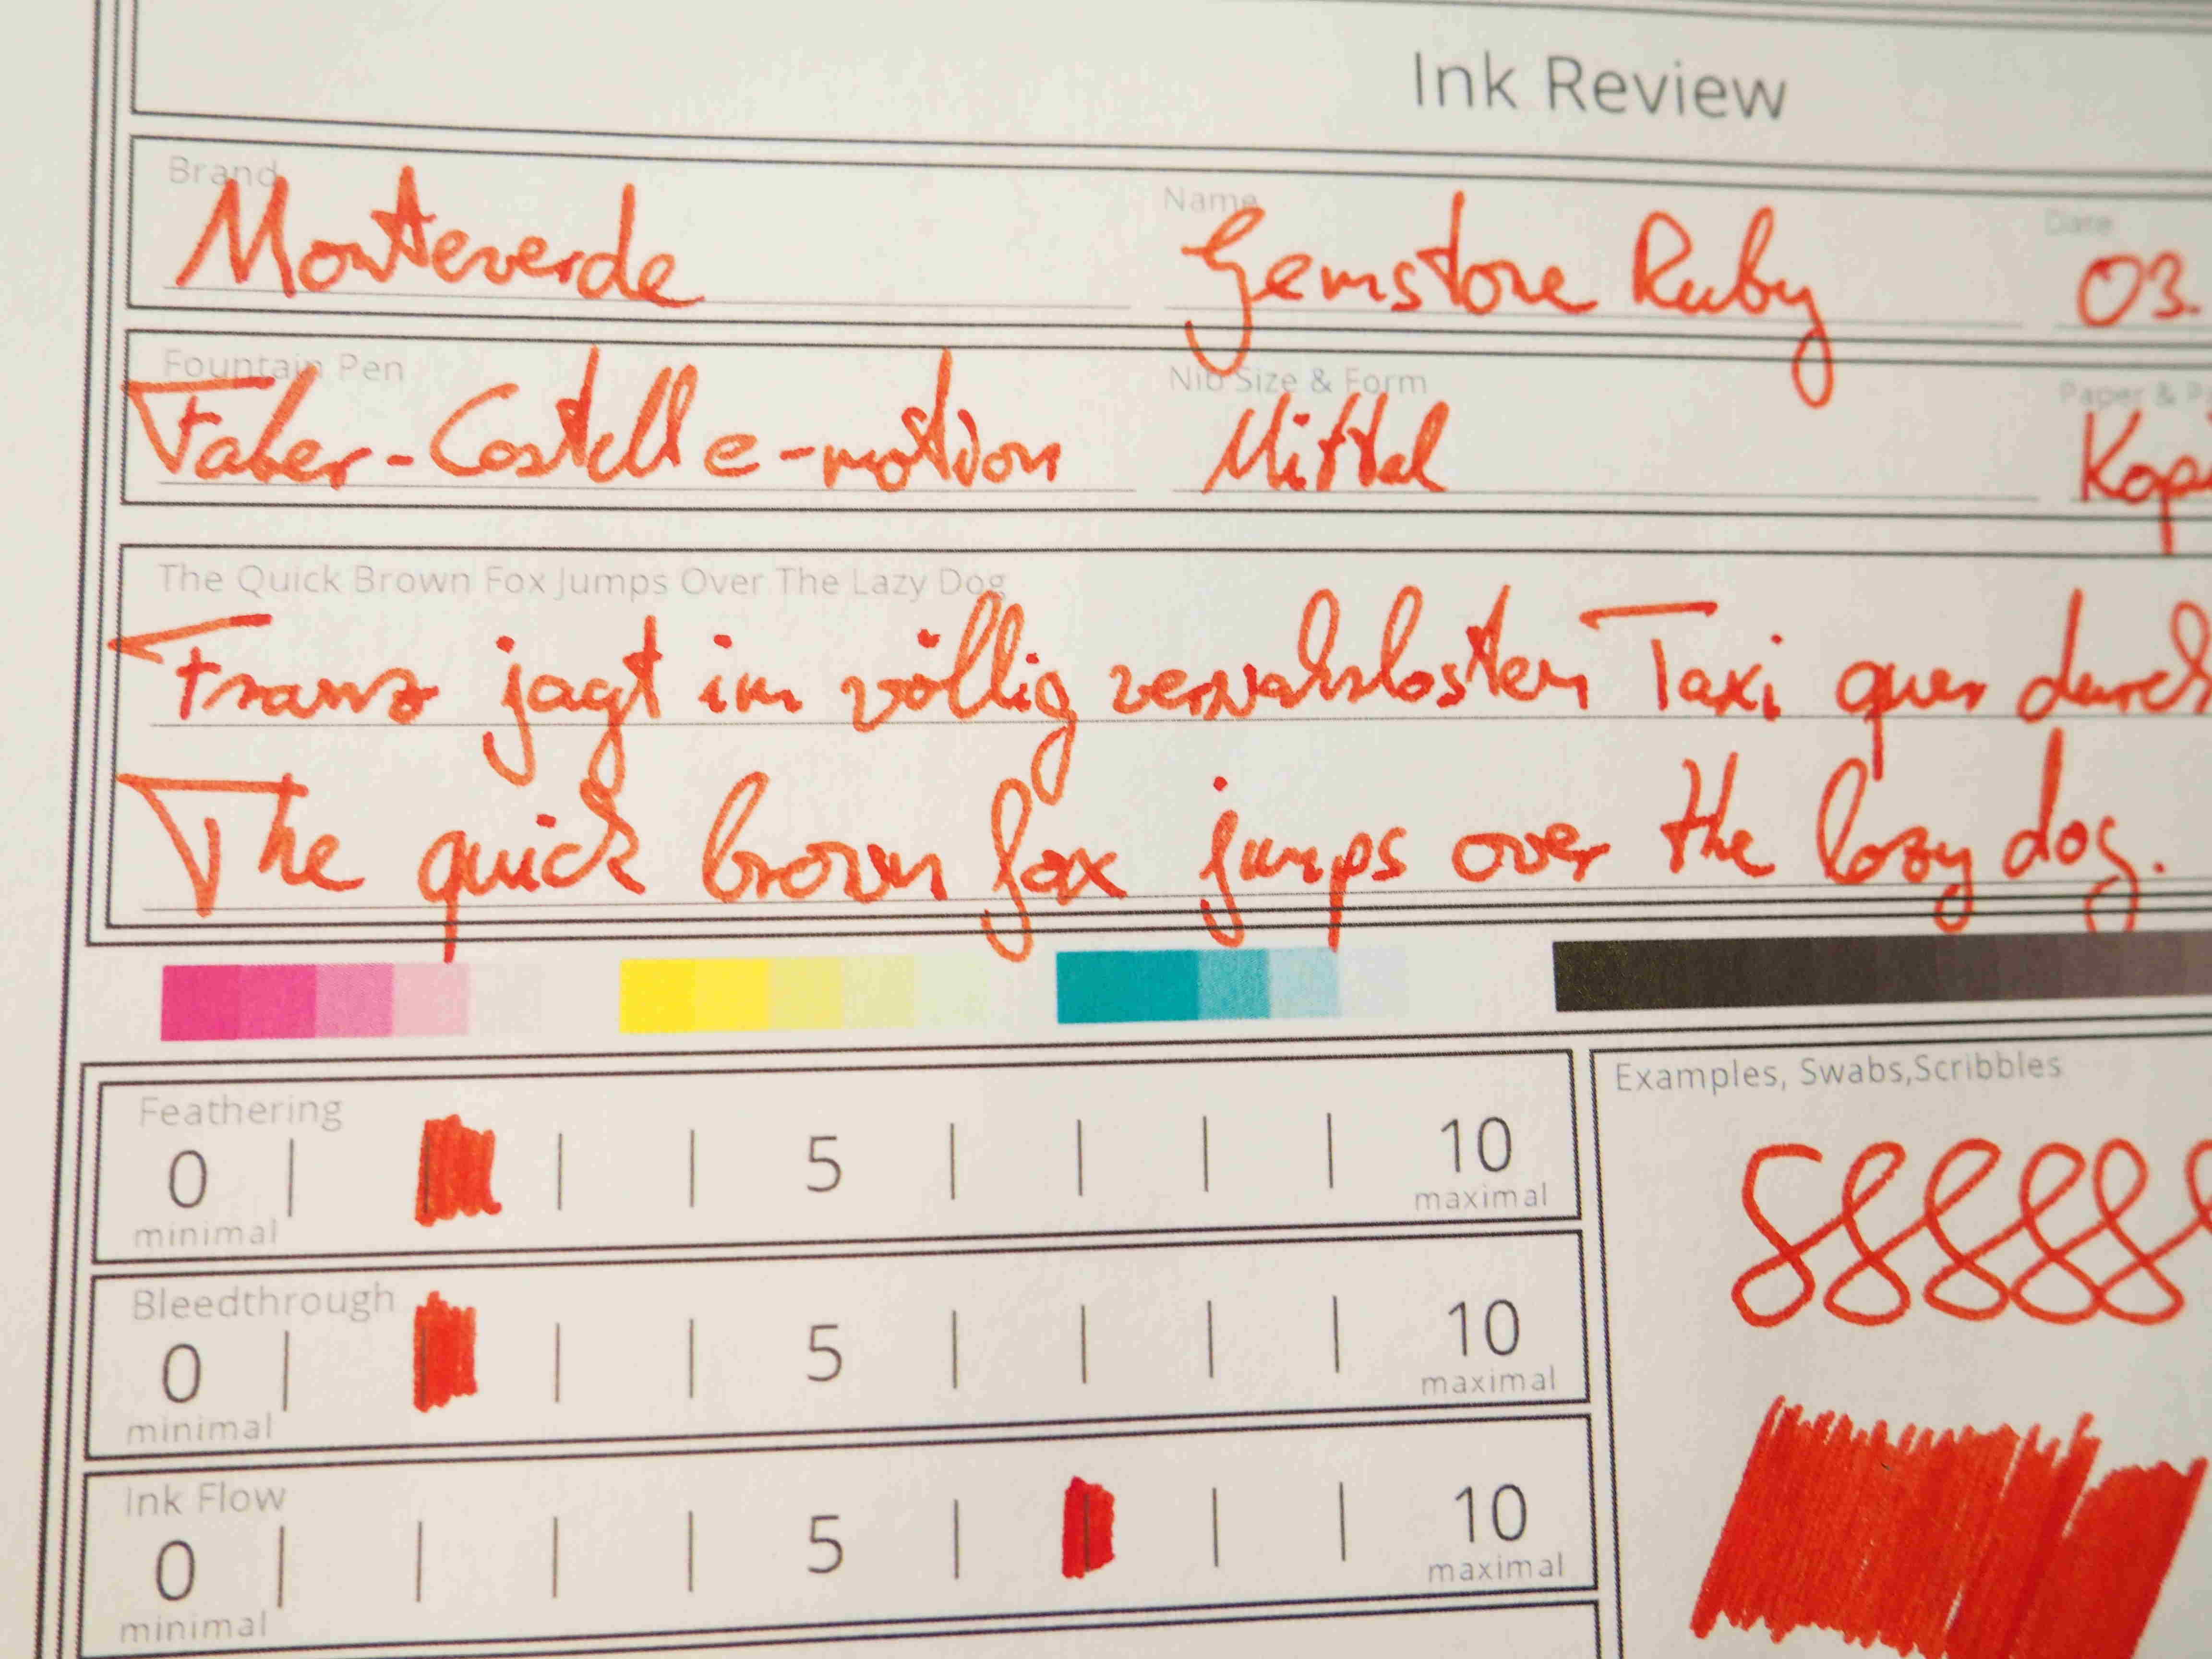 Ink Review
Brand Name Date
Monteverde Gemstone Ruby 03.
Fountain Pen Nib Size & Form Paper & P
Faber-Castell e-motion Mittel Kap
The Quick Brown Fox Jumps Over The Lazy Dog
Franz jagt im völlig verwahrlosten Taxi quer durch
The quick brown fox jumps over the lazy dog.
Feathering
0 5 10
minimal maximal
Bleedthrough
0 5 10
minimal maximal
Ink Flow
0 5 10
minimal maximal
Examples, Swabs,Scribbles